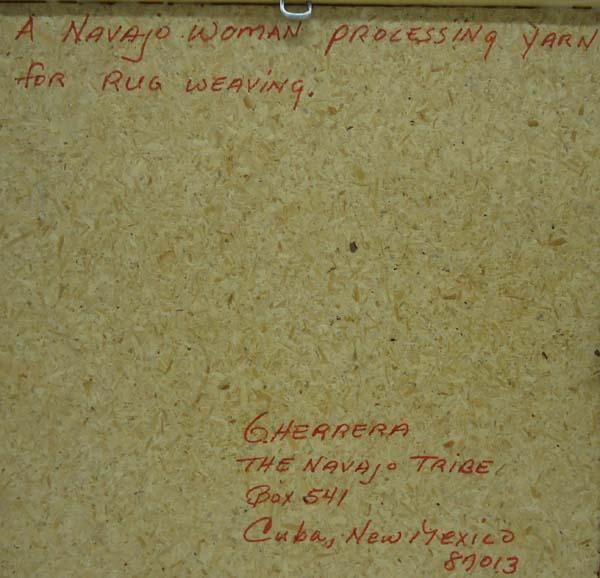 A NAVAJO WOMAN PROCESSING YARN
FOR RUG WEAVING.
GHERRERA
THE NAVAJO TRIBE
Box 541
Cuba, New Mexico
87013